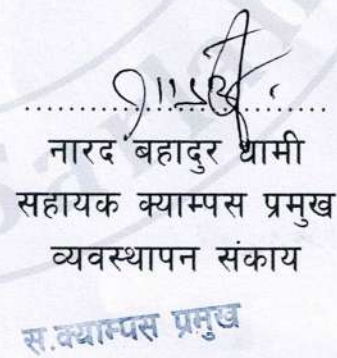 नारद बहादुर धामी
सहायक क्याम्पस प्रमुख
व्यवस्थापन संकाय
स.क्याम्पस प्रमुख